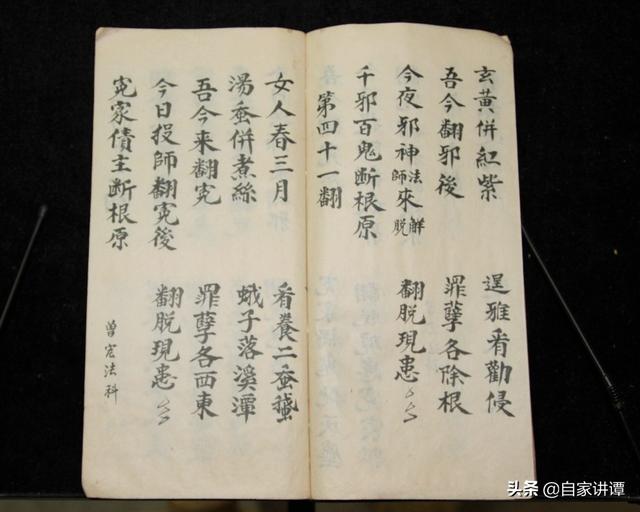 玄黄併紅紫 逞雅看勸侵
吾今翻邪後 罪孽各除根
今夜邪神法師來解脱 翻脱現患
千邪百鬼断根原
第四十一翻
女人春三月 看養二蚕蛾
湯蚕併煮絲 蛾子落溪潭
吾今来翻冤 罪孽各西東
今日投師翻冤後 翻脱現患
冤家債主断根原
曾宏法科
头条 @自家讲谭